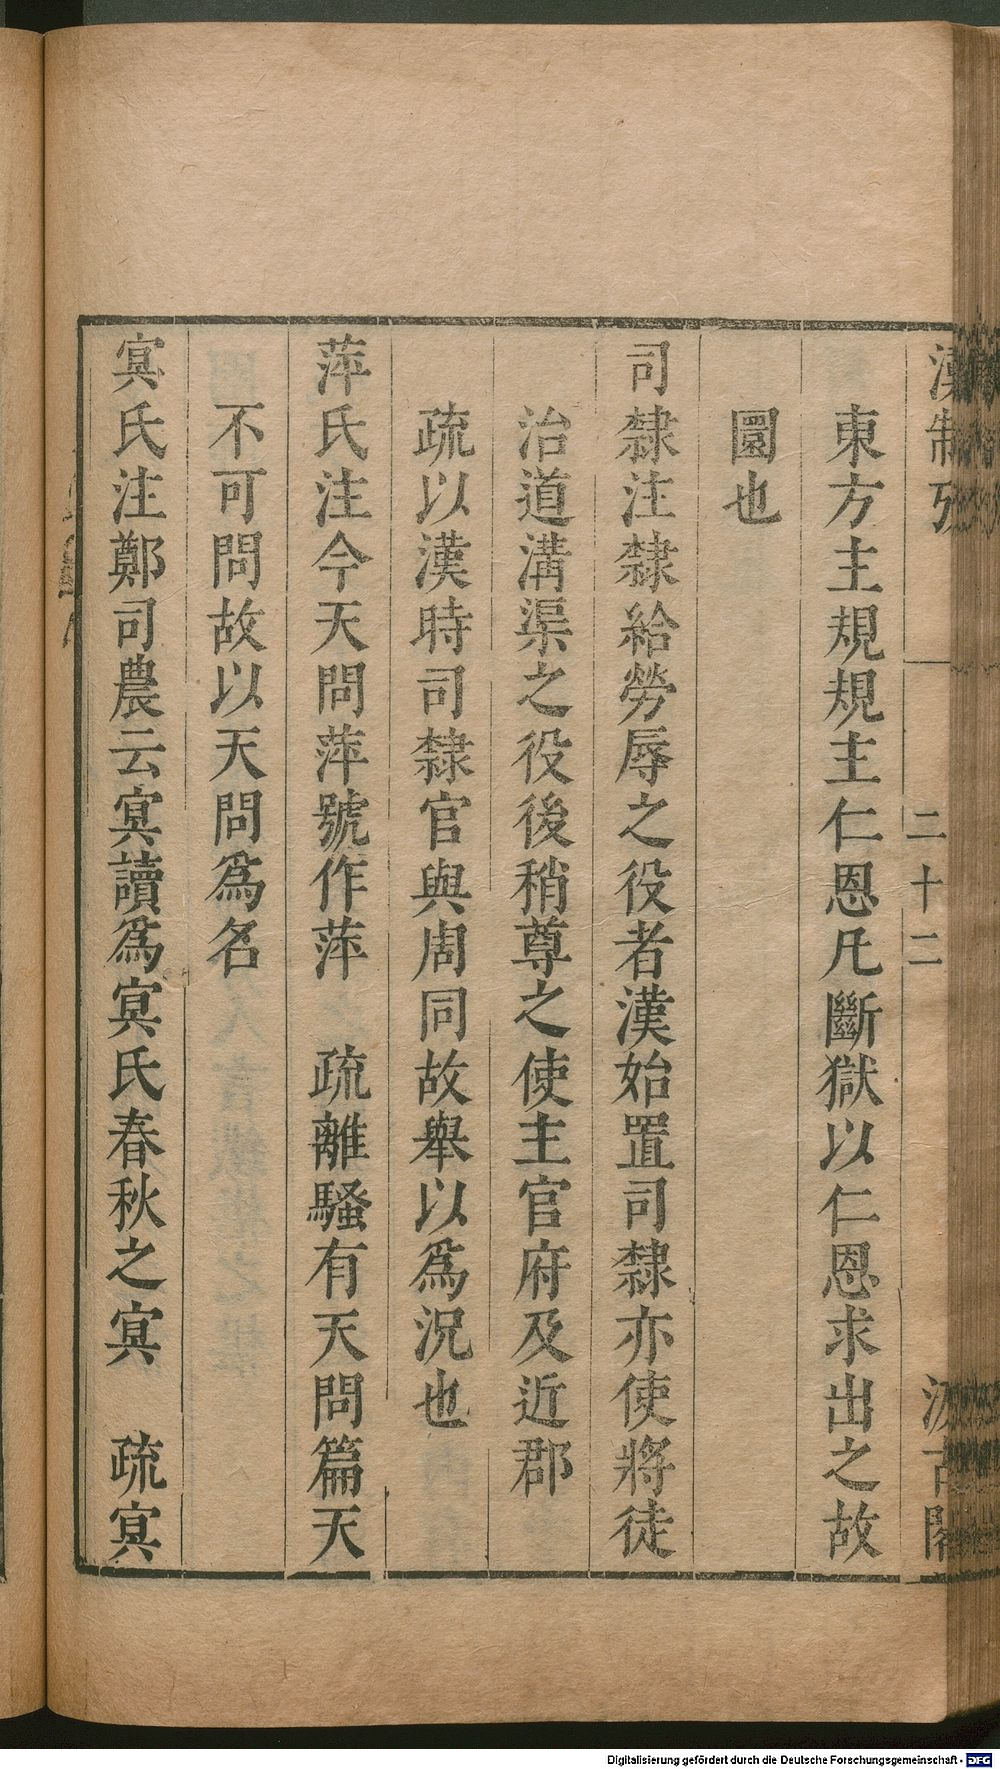 漢制攷
二十二
汲古閣
東方主規規主仁恩凡斷獄以仁恩求出之故
圜也
司隸注隸給勞辱之役者漢始置司隸亦使將徒
治道溝渠之役後稍尊之使主官府及近郡
疏以漢時司隸官與周同故舉以爲況也
萍氏注今天問萍號作萍　疏離騷有天問篇天
不可問故以天問爲名
冥氏注鄭司農云冥讀爲冥氏春秋之冥　疏冥
Digitalisierung gefördert durch die Deutsche Forschungsgemeinschaft - DFG